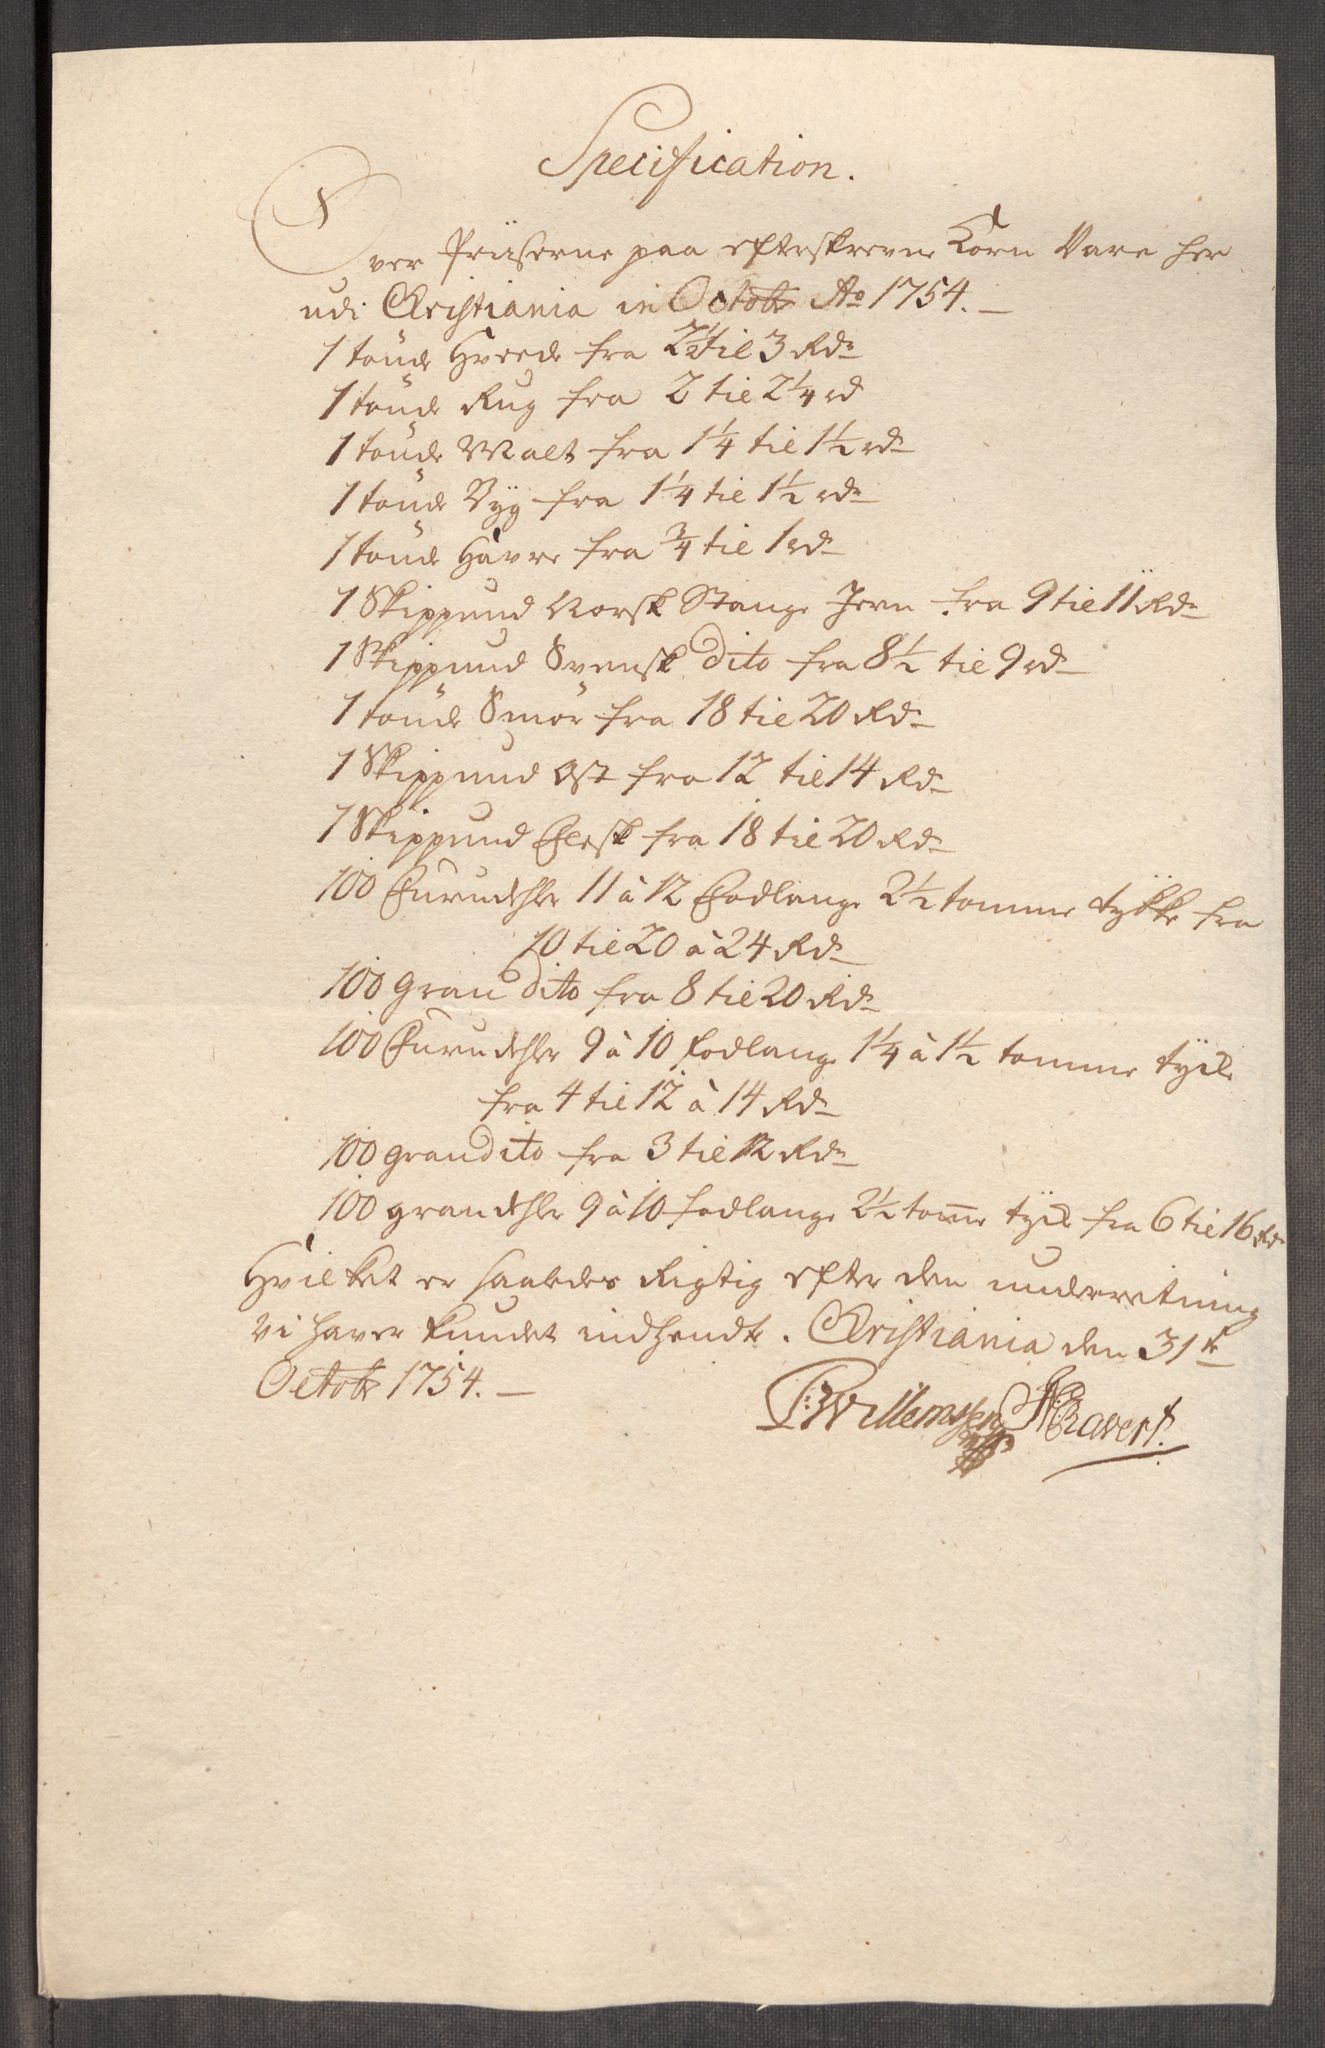 Specification.
Over Priiserne paa efterskrevne Korn Vare her
udi Christiania in Octobr Ao 1754. —
1 tönde Hvede fra 2½ til 3 Rdr
1 tönde Rug fra 2 til 2¼ rd
1 tönde Malt fra 1¼ til 1½ rdr
1 tönde Byg fra 1¼ til 1½ rdr
1 tönde Havre fra ¾ til 1 rdr
1 Skippund Norsk Stange Jern fra 9 til 11 Rdr
1 Skippund Svensk dito fra 8½ til 9 rd
1 tönde Smör fra 18 til 20 Rdr
1 Skippund Ost fra 12 til 14 Rdr
1 Skippund Flesk fra 18 til 20 Rdr
100 Furudehler 11 à 12 Fodlange 2½ tomme tykke fra
10 til 20 à 24 Rdr
100 gran dito fra 8 til 20 Rdr
100 Furudehler 9 à 10 fodlange 1¼ à 1½ tomme
fra 4 til 12 à 14 Rdr
100 gran dito fra 3 til 12 Rdr
100 grandehler 9 à 10 fodlange 2½ tome fra 6 til 16 Rdr
Hvilket er saaledes Rigtig efter den underretning
vi haver kundet indhendte. Christiania den 31te
Octobr 1754. —
P: Willemssen Ravert.